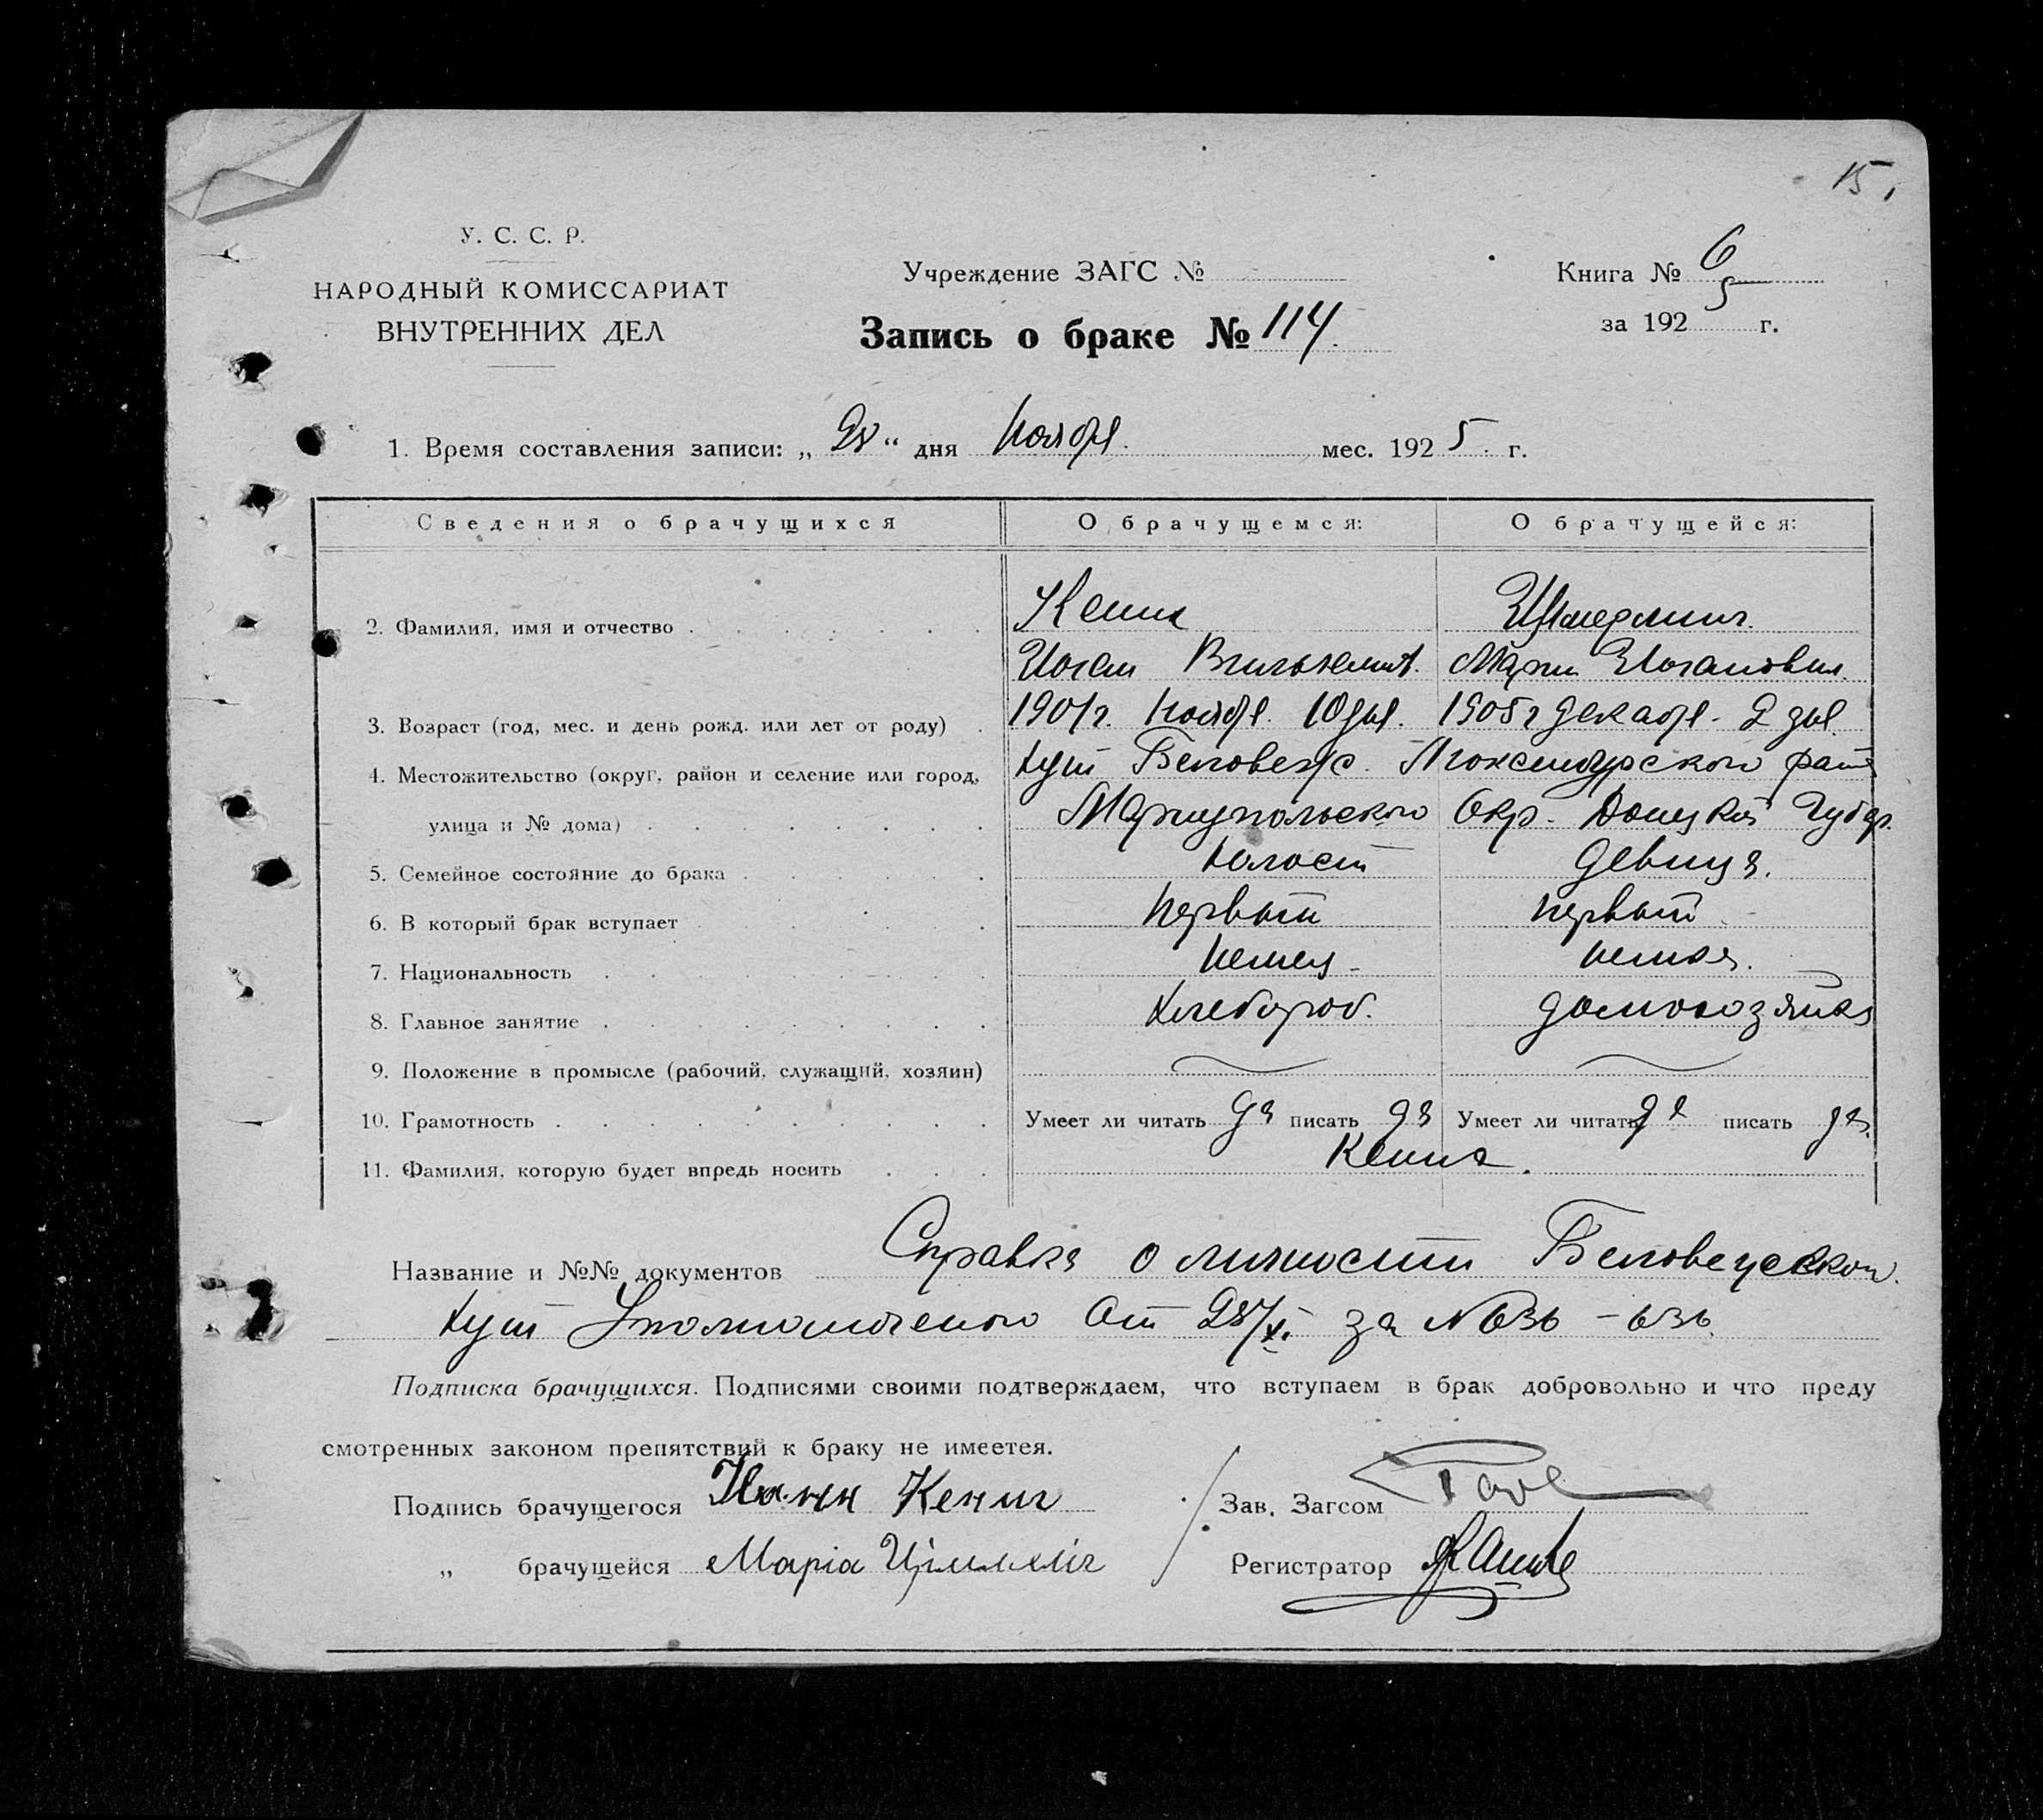 15
У. С. С. Р.
НАРОДНЫЙ КОМИССАРИАТ
ВНУТРЕННИХ ДЕЛ
Учреждение ЗАГС №
Книга № 6
за 192 5 г.
Запись о браке № 114.
1. Время составления записи: „ 28 “ дня Ноябр. мес. 192 5. г.
Сведения о брачущихся О брачущемся: О брачущейся:
2. Фамилия, имя и отчество Кениг
Вильгельм. Мария Ивановна.
3. Возраст (год, мес. и день рожд. или лет от роду) 1901 г. Ноябр. 10 дня. 1905 г декабр. 2 дня
4. Местожительство (округ, район и селение или город, хут Беловеж. Люксембургского район
улица и № дома) Мариупольского Окр. Донецкой Губер.
5. Семейное состояние до брака холост девица.
6. В который брак вступает первый первый
7. Национальность немец немка.
8. Главное занятие хлебороб. домохозяйка
9. Положение в промысле (рабочий, служащий, хозяин)
10. Грамотность Умеет ли читать да писать да Умеет ли читать да писать да.
11. Фамилия, которую будет впредь носить Кениг.
Название и №№ документов Справка о личности Беловежской
хут Уполномоченого от 28/XI. за № 636 - 636.
Подписка брачущихся. Подписями своими подтверждаем, что вступаем в брак добровольно и что преду
смотренных законом препятствий к браку не имеетея.
Подпись брачущегося Кениг Зав. Загсом
„ брачущейся Маріа Регистратор